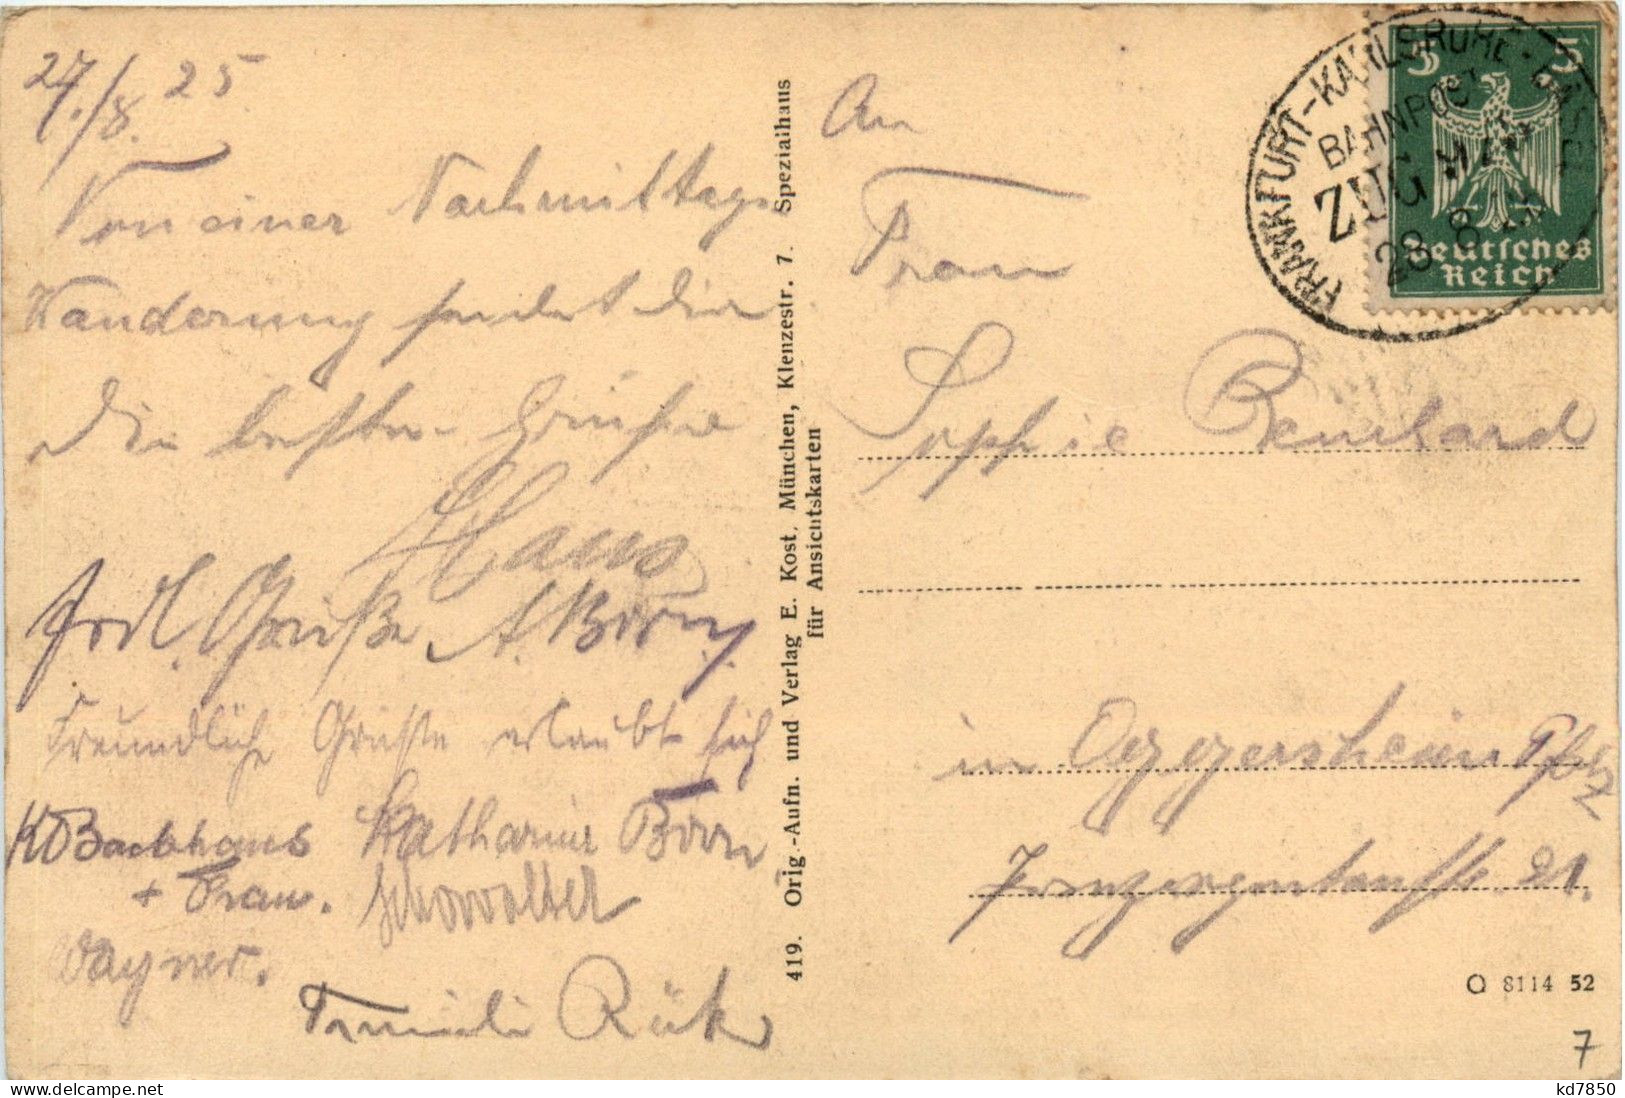 27./8. 25
Von einer Nachmittags
Wanderung sendet dir
die besten Grüße
Hans
Frdl. Grüße A. Born
Freundliche Grüße erlaubt sich
K Backhaus Katharina Born
+ Frau. Schowalter
Wagner.
Familie Rück
419. Orig.-Aufn. und Verlag E. Kost, München, Klenzestr. 7. Spezialhaus
für Ansichtskarten
An
Frau
Sophie Bernhard
in Oggersheim Pfalz
21.
FRANKFURT-KARLSRUHE-BASEL
BAHNPOST
ZUG
28 8
5 5
Deutsches
Reich
O 8114 52
7
kd7850